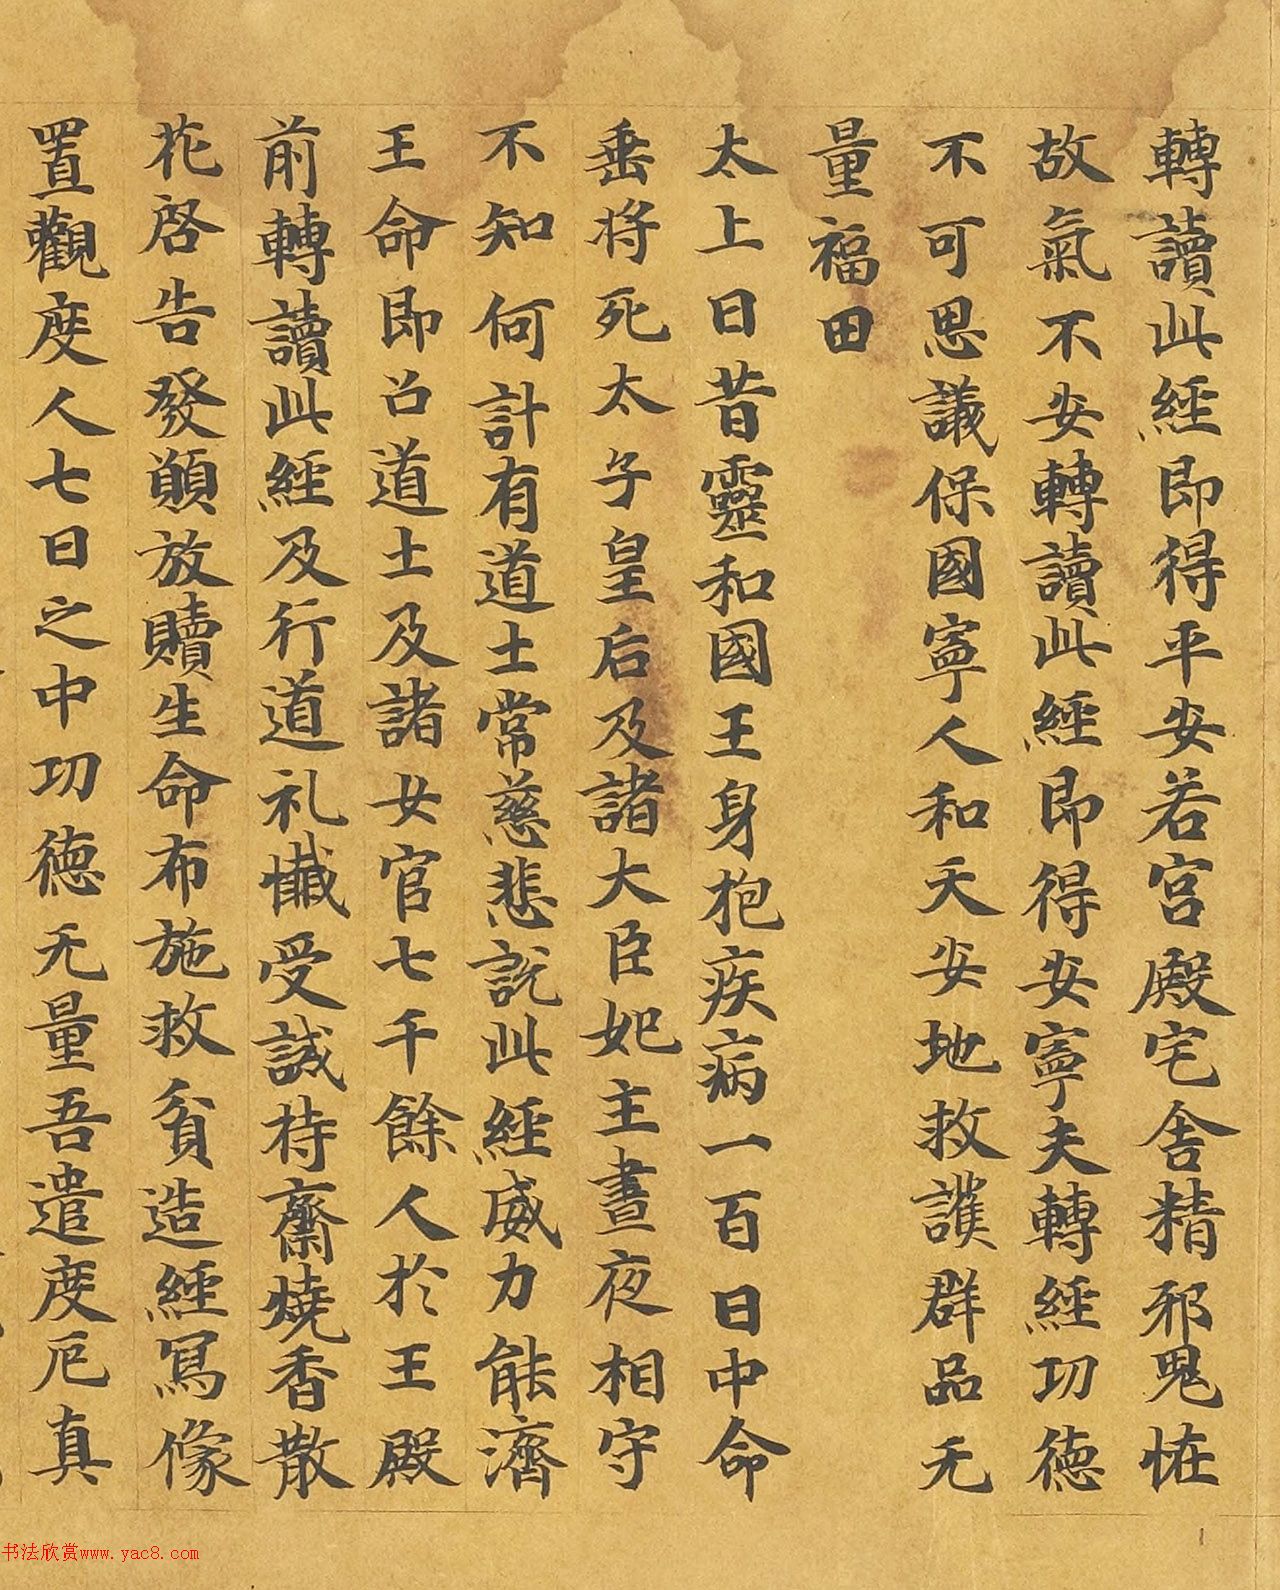 轉讀此經即得平安若宮殿宅舍精邪鬼恠
故氣不安轉讀此經即得安寧夫轉經功德
不可思議保國寧人和天安地救護群品无
量福田
太上曰昔靈和國王身抱疾病一百日中命
垂将死太子皇后及諸大臣妃主晝夜相守
不知何計有道士常慈悲説此經威力能濟
王命即召道士及諸女官七千餘人於王殿
前轉讀此經及行道礼懴受誡持齋燒香散
花啓告發願放贖生命布施救貧造經寫像
置觀度人七日之中功德无量吾遣度厄真
书法欣赏www.yac8.com